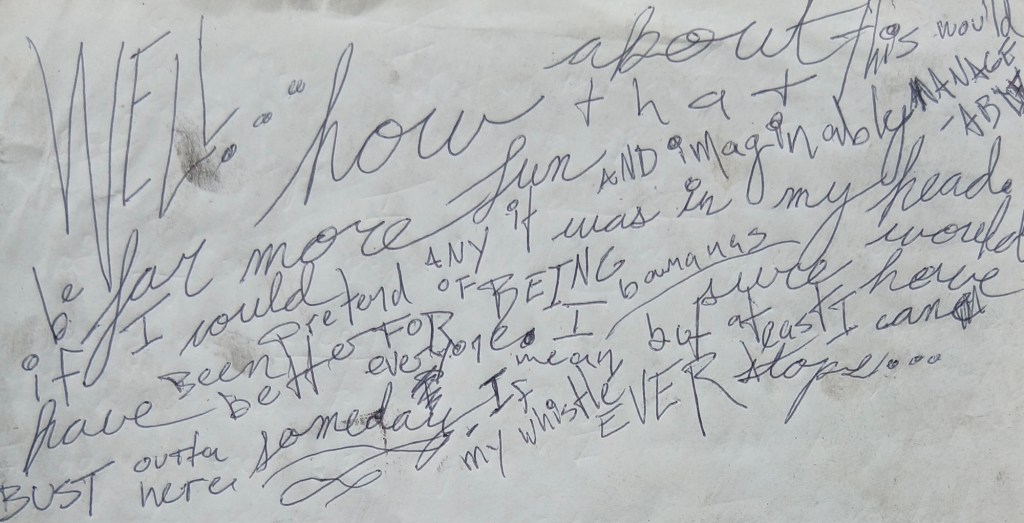 WELL. how about
that this would
be far more fun AND imaginably MANAGE-
if I could pretend ANY of it was in my head.
have BEEN better FOR BEING bananas sure would
BUST outta here someday everyone. I mean but at least I have
IF my whistle EVER stops...